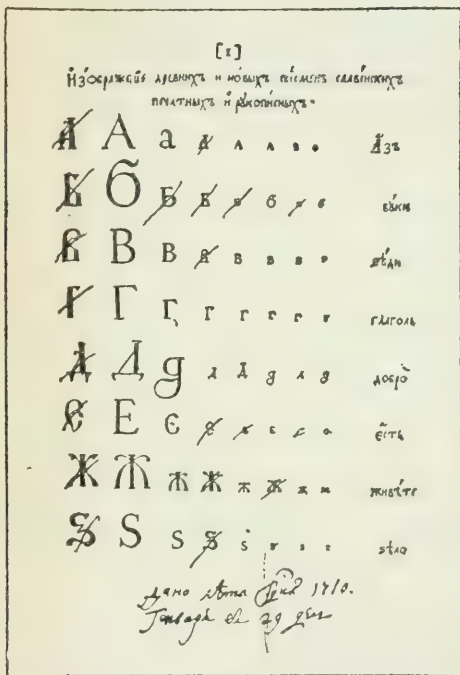 [1]
Изображенїе древнихъ и новыхъ писменъ славенскихъ
печатныхъ и рꙋкописныхъ.
А А а а а а а Азъ
Б Б Б Б Б б б б бꙋки
В В В в в в в в вѣди
Г Г г г г г г г глаголь
Д Д д д д д д д добро
Є Е є є є є є є єсть
Ж Ж ж ж ж ж ж ж живѣте
Ѕ Ѕ ѕ ѕ ѕ ѕ ѕ ѕ ѕѣло
Дано лѣта 1710.
Генваря въ 29 день